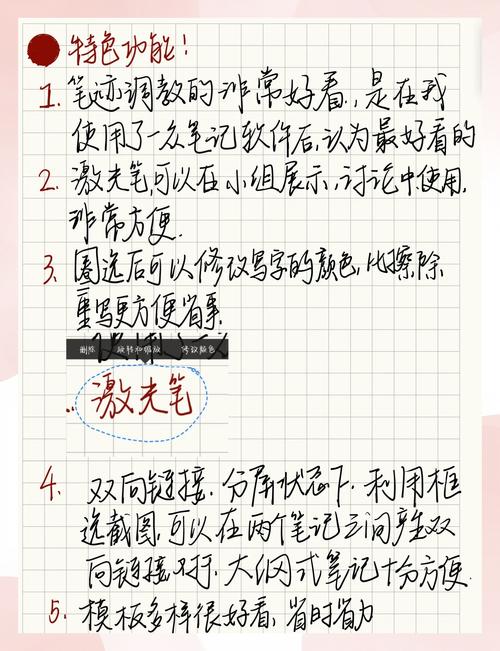 特色功能!
1. 笔迹调教的非常好看,是在我
使用了一众笔记软件后,认为最好看的
2. 激光笔,可以在小组展示,讨论中使用,
非常方便.
3. 圈选后可以修改写字的颜色,比擦除
重写更方便省事.
删除 旋转和缩放 修改颜色
激光笔
4. 双向链接. 分屏状态下. 利用框
选截图,可以在两个笔记之间产生双
向链接 对大纲式笔记十分方便.
5. 模板多样很好看,省时省力